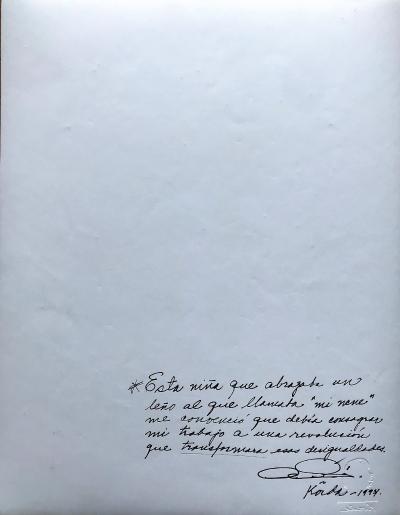 * Esta niña que abrazaba un
leño al que llamaba "mi nene"
me convenció que debía consagrar
mi trabajo a una revolución
que transformara esas desigualdades.
Korda - 1994